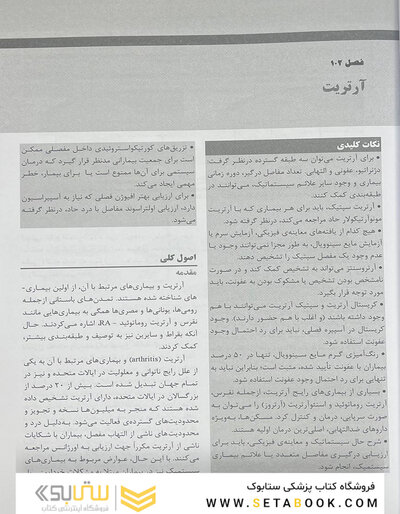 فصل ۱۰۲
آرتریت
نکات کلیدی
• برای آرتریت می‌توان به طبقه گسترده درنظر گرفت
دژنراتیو، عفونی و التهابی. تعداد مفاصل درگیر، دوره زمانی
بیماری و وجود سایر علائم سیستماتیک، می‌توانند در
طبقه‌بندی کمک کنند.
• آرتریت سپتیک، باید برای هر بیماری که با آرتریت
مونوآرتیکولار حاد مراجعه می‌کند، درنظر گرفته شود.
• هیچ کدام از یافته‌های معاینه‌ی فیزیکی، آزمایش سرم یا
آزمایش مایع سینوویال، به طور مجزا نمی‌توانند وجود یا
عدم وجود یک مفصل سپتیک را تشخیص دهند.
• آرتروسنتز می‌تواند به تشخیص کمک کند و در صورت
نامشخص بودن تشخیص یا مشکوک بودن به عفونت، باید
مورد توجه قرار بگیرد.
• کریستال آرتریت و سپتیک آرتریت می‌توانند با هم
وجود داشته باشند (و اغلب با هم حضور دارند). وجود
کریستال در آسپیره فصلی، نباید برای رد احتمال وجود
عفونت استفاده شود.
• رنگ‌آمیزی گرم مایع سینوویال، تنها در ۵۰ درصد
بیماران با عفونت تأیید شده، مثبت است؛ بنابراین نباید به
تنهایی برای رد احتمال وجود عفونت، استفاده شود.
• بسیاری از بیماری‌های رایج آرتریت، ازجمله نقرس،
آرتریت روماتوئید و استئوآرتریت (آرتروز) را می‌توان به
صورت سرپایی، درمان و کنترل کرد. مسکن‌ها، به‌ویژه
داروهای ضدالتهابی، اصلی‌ترین درمان اولیه هستند.
• شرح حال سیستماتیک و معاینه‌ی فیزیکی، باید برای
ارزیابی درگیری مفاصل متعدد یا علائم بیماری
سیستمیک، انجام شود.
• تزریق‌های کورتیکواستروئیدی داخل مفصلی ممکن
است برای جمعیت بیمارانی مدنظر قرار گیرد که درمان
سیستمی برای آن‌ها ممنوع است یا برای بیمار، خطر
مهمی ایجاد می‌کند.
• برای ارزیابی بهتر افیوژن فصلی که نیاز به آسپیراسیون
دارد، ارزیابی اولتراسوند مفاصل با درد حاد، درنظر گرفته
می‌شود.
اصول کلی
مقدمه
آرتریت و بیماری‌های مرتبط با آن، از اولین بیماری-
های شناخته شده هستند. تمدن‌های باستانی ازجمله
رومی‌ها، یونانی‌ها و مصری‌ها همگی به بیماری‌هایی مانند
نقرس و آرتریت روماتوئید - RA، اشاره می‌کردند. حال
آنکه بقراط و سایرین نیز به توصیف و طبقه‌بندی بیشتر،
کمک کردند.
آرتریت (arthritis) و بیماری‌های مرتبط با آن به یکی
از علل رایج ناتوانی و معلولیت در ایالات متحده و نیز در
تمام جهان تبدیل شده است. بیش از ۲۰ درصد از
بزرگسالان در ایالات متحده، دارای آرتریت تشخیص داده
شده هستند که منجر به میلیون‌ها نسخه و تجویز و
محدودیت‌های گسترده‌ی فعالیت می‌شود. به‌دلیل درد و
محدودیت‌های ناشی از التهاب مفصل، بیماران با شکایات
ناشی از آرتریت مکرراً جهت ارزیابی به اورژانس مراجعه
می‌کنند. با این حال، عوارض مربوط به بیماری‌های
فروشگاه کتاب پزشکی ستابوک
WWW.SETABOOK.COM
ستابوک
فروشگاه اینترنتی کتاب